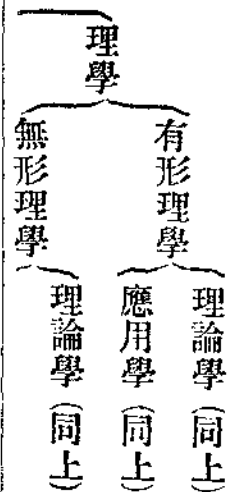 理學
有形理學
理論學（同上）
應用學（同上）
無形理學
理論學（同上）